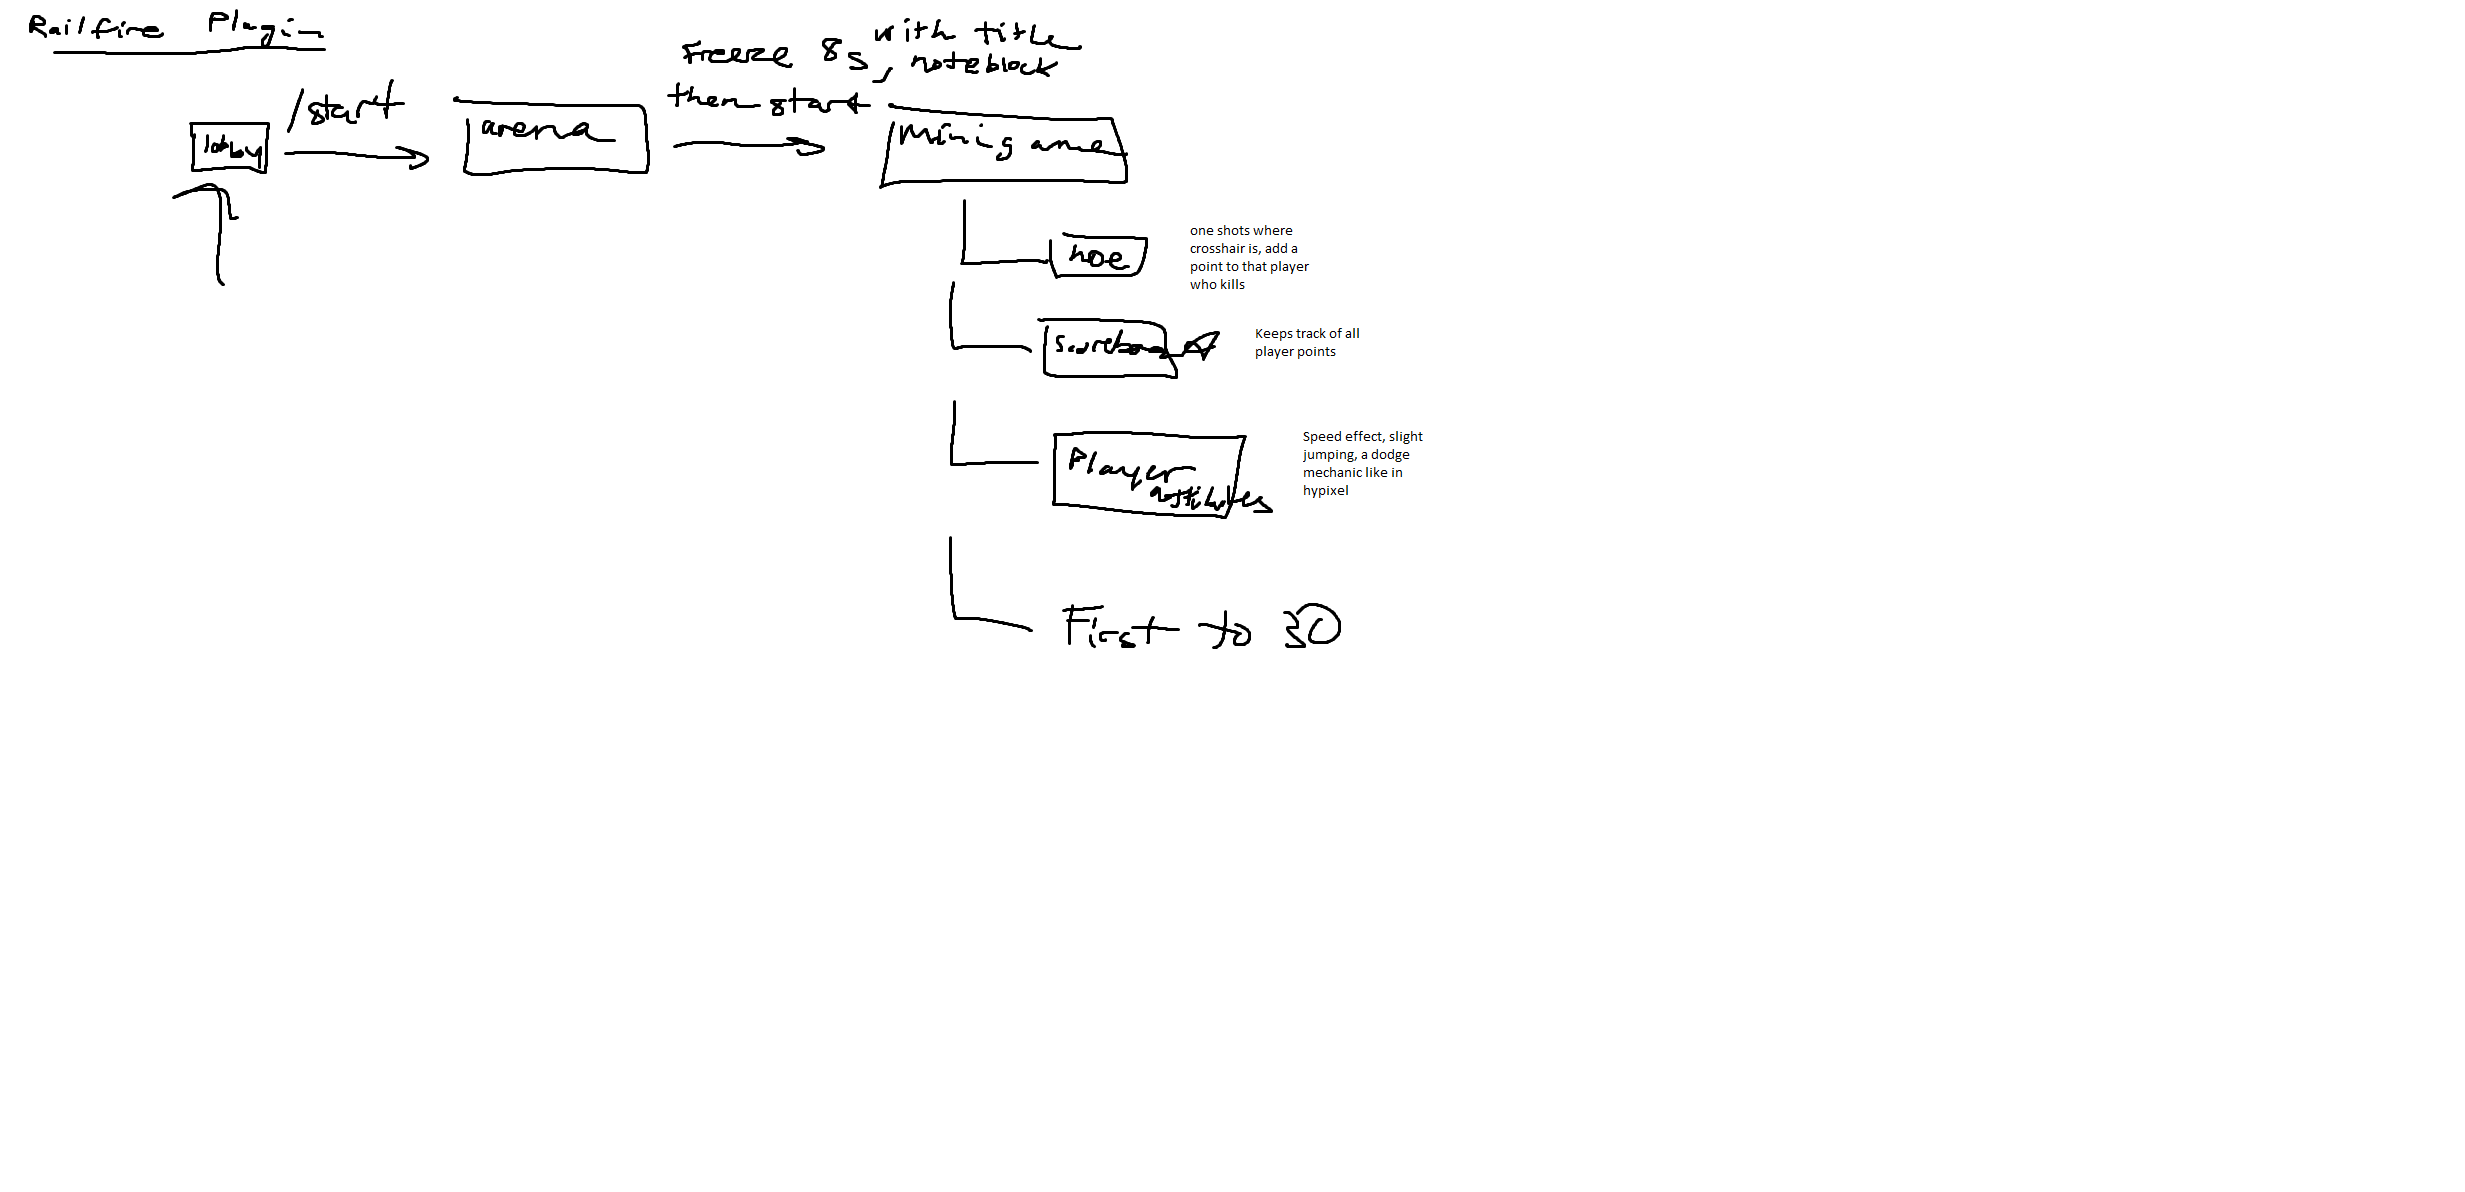 Railfire Plugin
/start
lobby
arena
Freeze 8s, with title
noteblock
then start
Minigame
hoe
one shots where
crosshair is, add a
point to that player
who kills
Scoreboard
Keeps track of all
player points
Player
attributes
Speed effect, slight
jumping, a dodge
mechanic like in
hypixel
First to 30